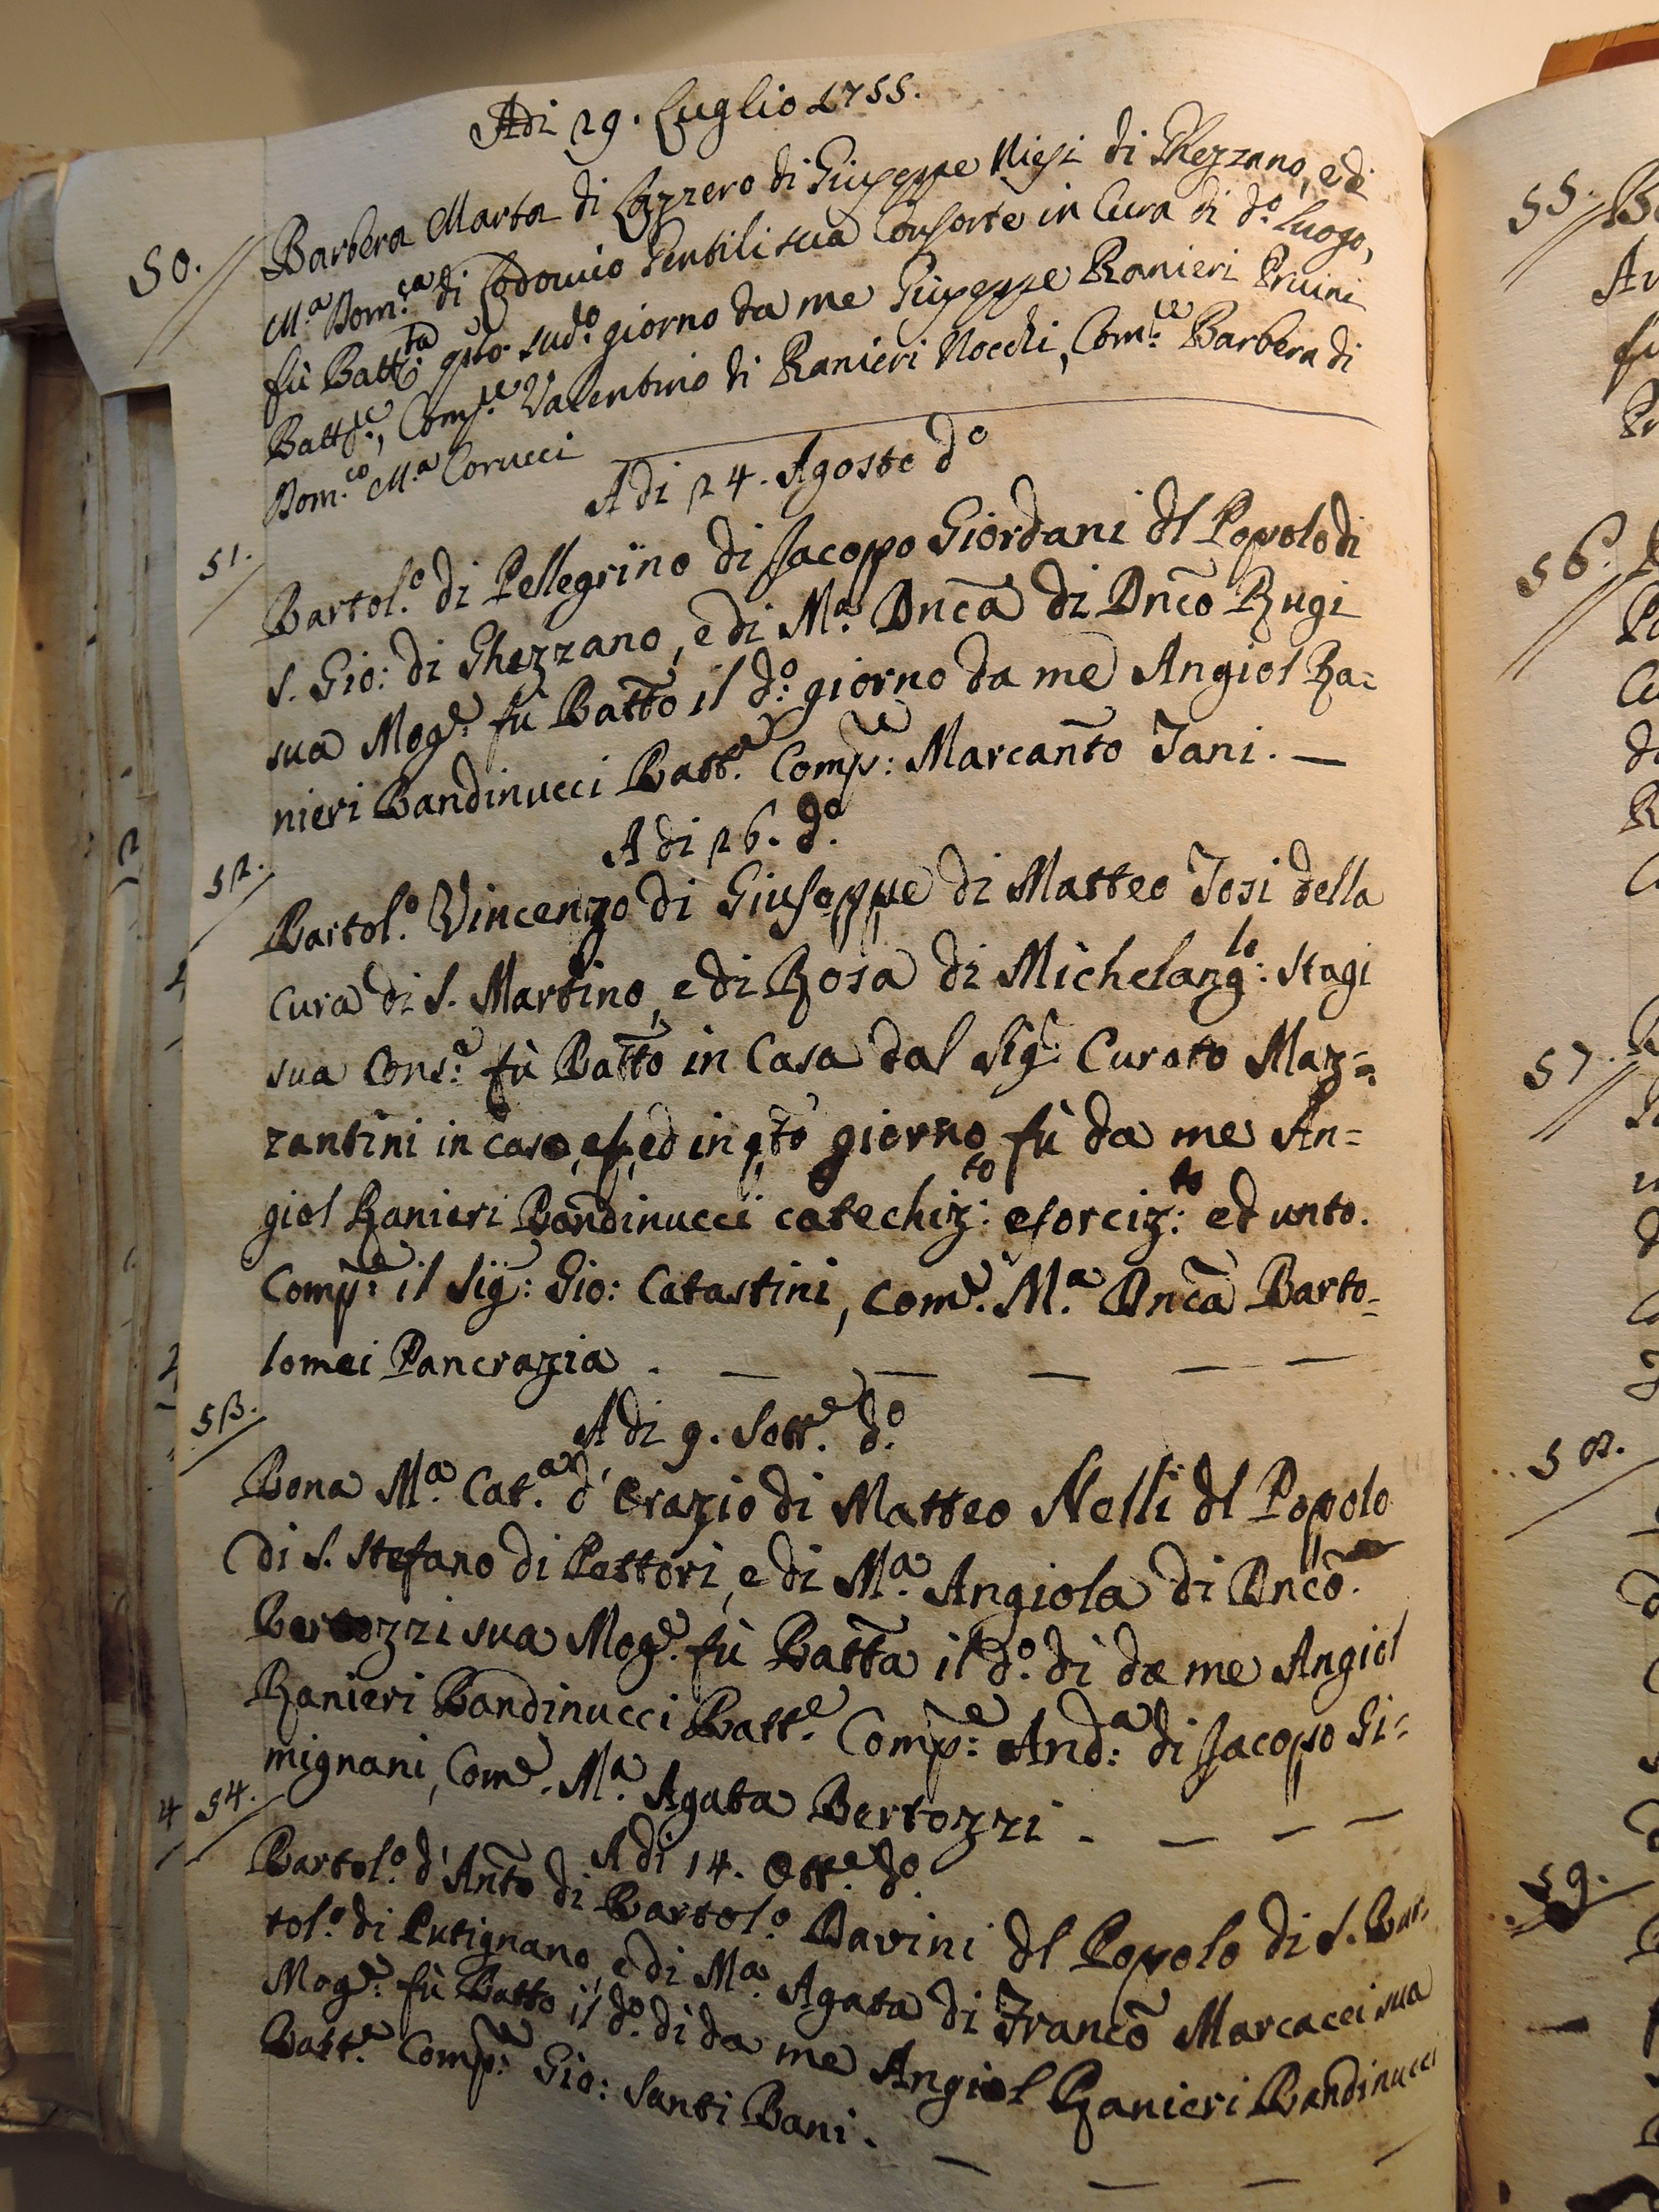 Adi 29. Luglio 1755.
50. Barbera Marta di Lazzero di Giuseppe Niesi di Ghezzano, e di
M.ª Dom.ca di Lodovico Gentili sua Consorte in Cura di d.º luogo,
fù Batt.ta q.sto sud.º giorno da me Giuseppe Ranieri Prini
Batt.re, Comp.re Valentino di Ranieri Nocchi, Com.re Barbera di
Dom.co M.ª Corucci
Adi 24. Agosto d.º
51. Bartol.º di Pellegrino di Jacopo Giordani dl Popolo di
S. Gio: di Ghezzano, e di M.ª Dnca di Dnco Rugi
sua Mog.e fù Batto il d.º giorno da me Angiol Ra=
nieri Bandinucci Batt.e Comp.e: Marcanto Tani. —
Adi 26. d.º
52. Bartol.º Vincenzo di Giuseppe di Matteo Tosi della
Cura di S. Martino, e di Rosa di Michelang.lo: Stagi
sua Cons.e fù Batto in Casa dal Sig.r Curato Maz=
zantini in caso, ed in q.to giorno fù da me An=
giol Ranieri Bandinucci catechiz.to: esorciz.to: ed unto.
Comp.e: il Sig.: Gio: Catastini, Com.e M.ª Dnca Barto=
lomei Pancrazia. — — — — —
Adi 9. Sett.e d.º
53. Bona M.ª Cat.ª d'Orazio di Matteo Nelli dl Popolo
di S. Stefano di Pettori, e di M.ª Angiola di Dnco.
Bertozzi sua Mog.e fù Batta il d.º dì da me Angiol
Ranieri Bandinucci Batt.e Comp.e: And.ª: di Jacopo Gi=
mignani, Com.e M.ª Agata Bertozzi. — — —
Adi 14. Ott.e d.º
54. Bartol.º d'Anto di Bartol.º Davini dl Popolo di S. Bar=
tol.º di Putignano, e di M.ª Agata di Franco Marcacci sua
Mog.e: fù Batto il d.º dì da me Angiol Ranieri Bandinucci
Batt.e Comp.e: Gio: Santi Bani. — — — —
55.
56.
57.
58.
59.